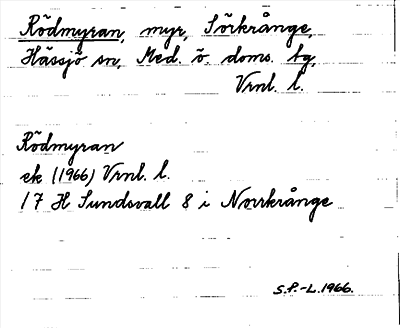 Rödmyran, myr, Sörkrånge,
Hässjö sn, Med. ö. doms. bg,
Vrnl. l.
Rödmyran
ek (1966) Vrnl. l.
17 H Sundsvall 8 i Norrkrånge
S.P.-L. 1966.